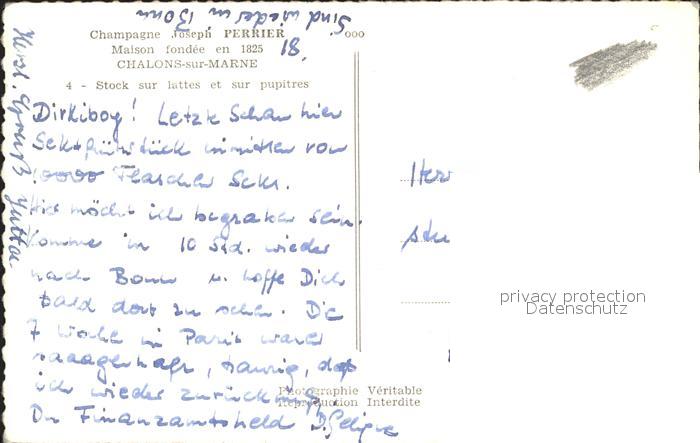 Sind wieder in Bonn
Champagne Joseph PERRIER
Maison fondée en 1825
CHALONS-sur-MARNE
4 - Stock sur lattes et sur pupitres
18.
000
Dirkiboy! Letzte Schau hier
Sektfrühstück inmitten von
10000 Flaschen Sekt.
Hier möcht ich begraben sein.
Komme in 10 Std. wieder
nach Bonn u. hoffe Dich
bald dort zu sehen. Die
7 Woche in Paris waren
saaagenhaft, traurig, daß
ich wieder zurück muß.
Du Finanzamtsheld
Herzl. Gruß Jutta
Herr
privacy protection
Datenschutz
Photographie Véritable
Reproduction Interdite